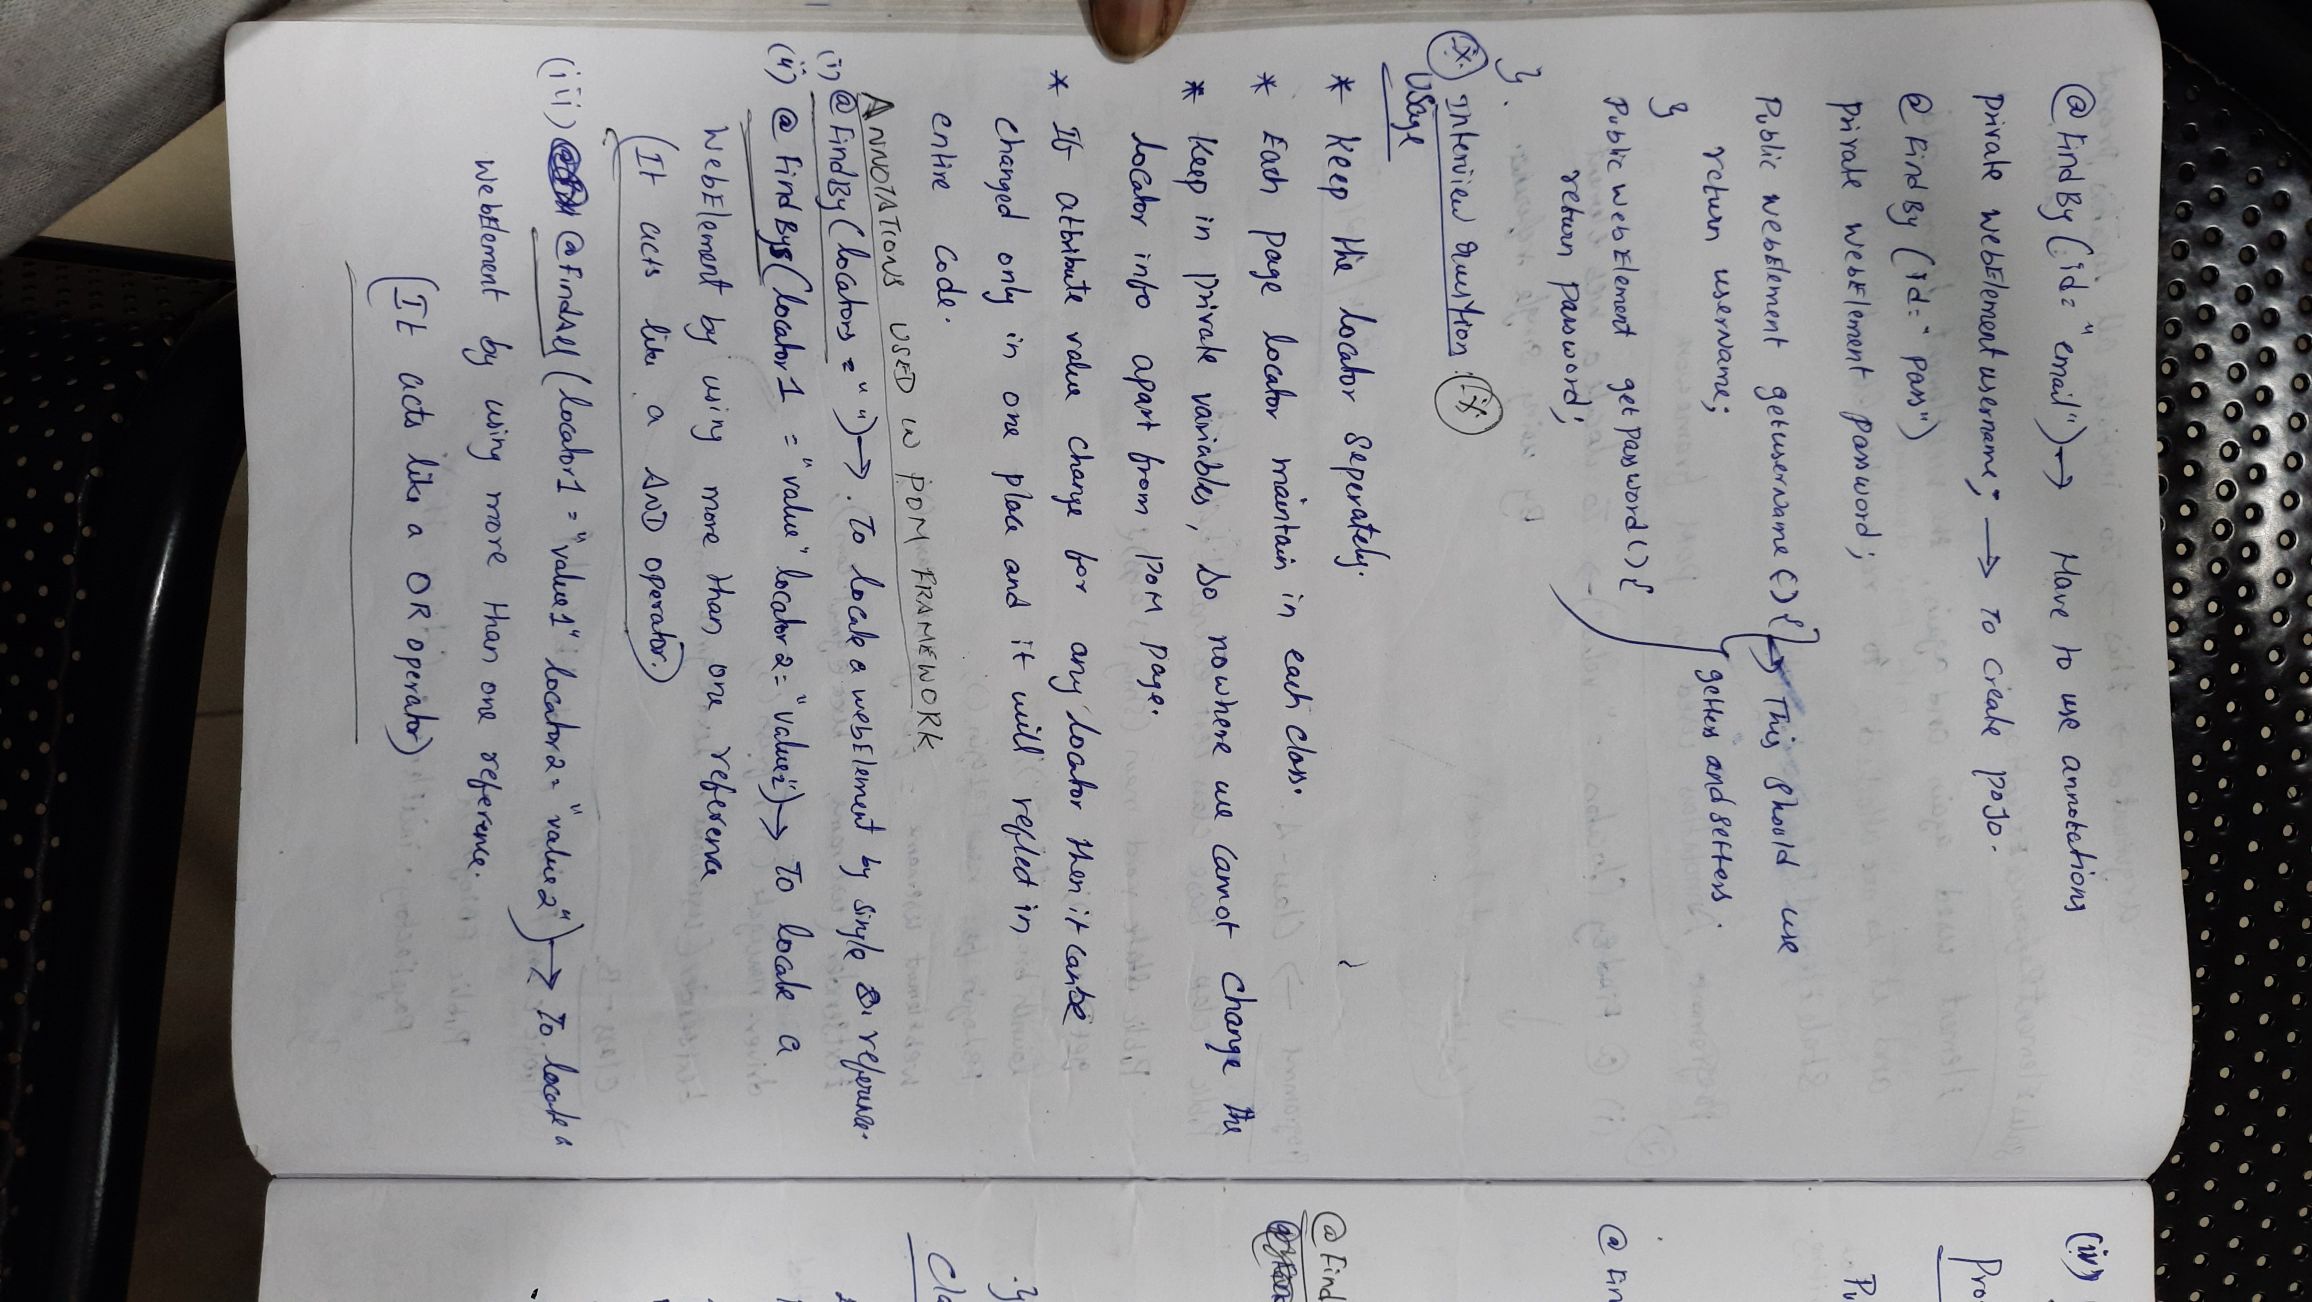 @FindBy(id="email") → Have to use annotations
private WebElement username; → To create POJO.
@FindBy(id="pass")
private WebElement password;
Public WebElement getusername() { → This should use
return username; getters and setters
}
Public WebElement getpassword() {
return password;
}.
* Interview Question: *
Usage
* Keep the locator seperately.
* Each page locator maintain in each class.
* Keep in private variables, so nowhere we cannot change the
locator info apart from POM page.
* If attribute value change for any locator then it can be
changed only in one place and it will reflect in
entire code.
ANNOTATIONS USED IN POM FRAMEWORK
(i) @FindBy(locators = " ") → To locate a webElement by single reference.
(ii) @FindBys(locator1 = "value" locator2 = "value2") → To locate a
WebElement by using more than one reference
(It acts like a AND operator.)
(iii) @FindAll(locator1 = "value1" locator2 = "value2") → To locate a
WebElement by using more than one reference.
(It acts like a OR operator)
(iv)
@Find